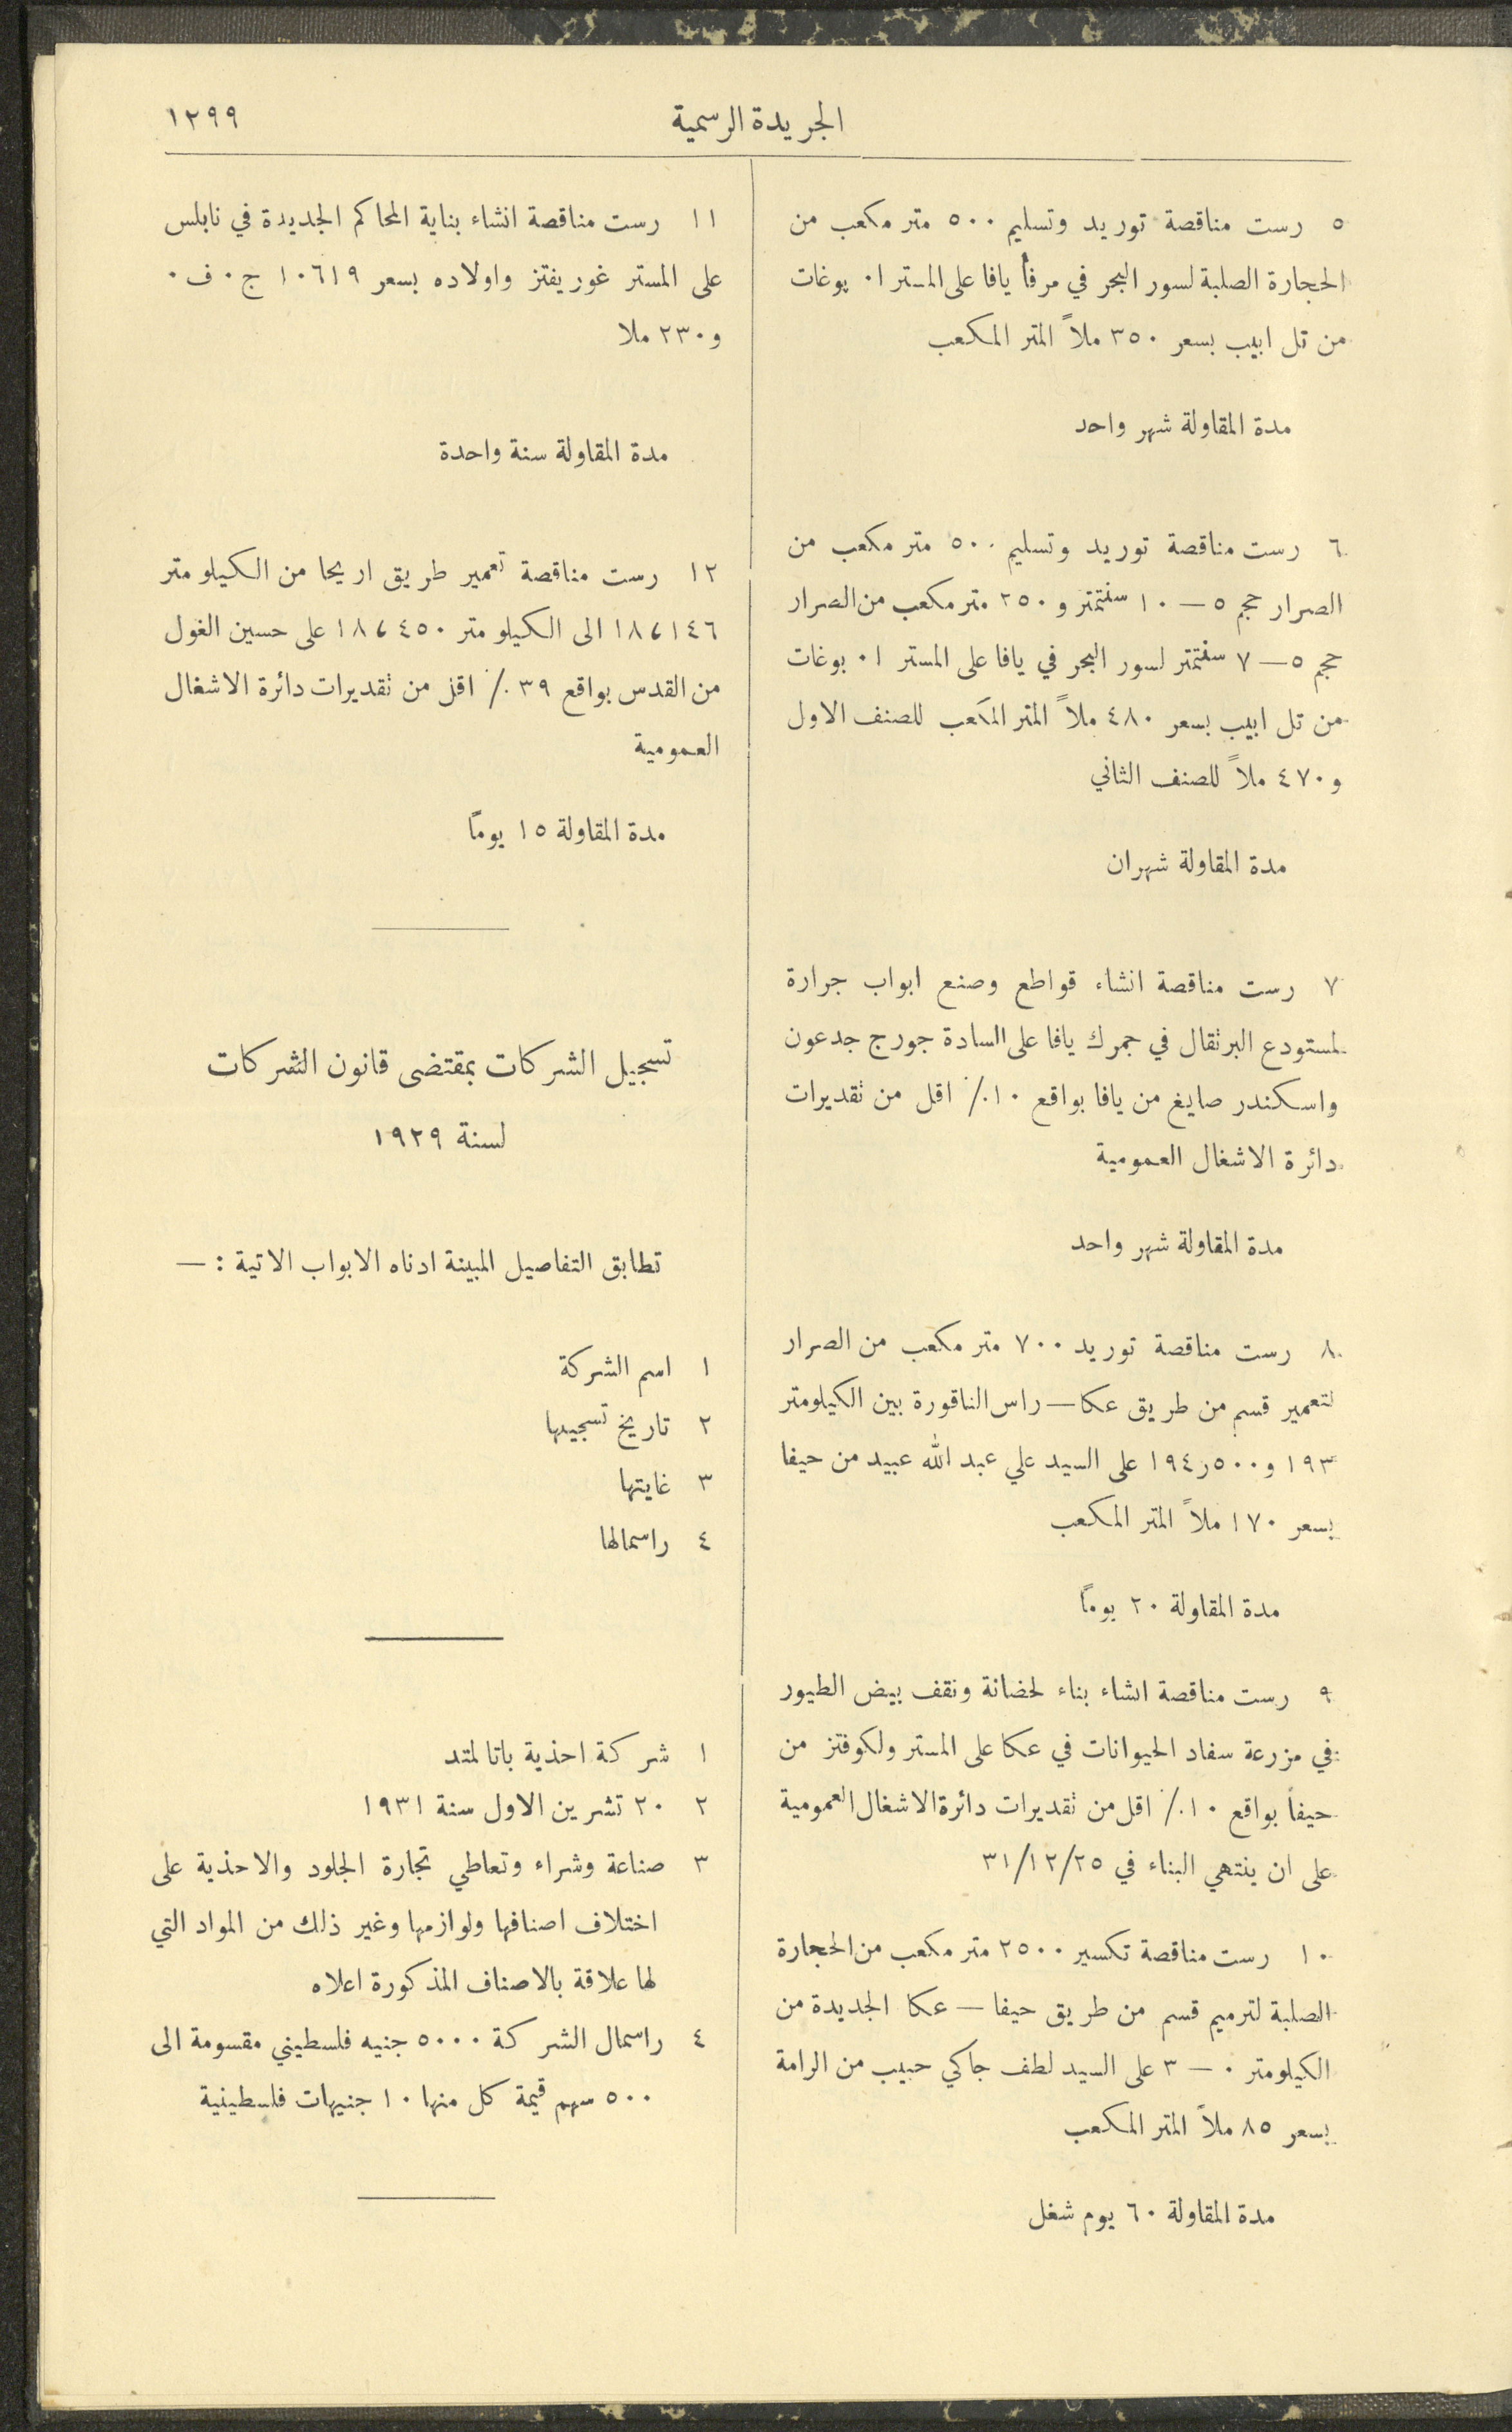 الجريدة الرسمية
١٢٩٩
٥ رست مناقصة توريد وتسليم ٥٠٠ متر مكعب من
الحجارة الصلبة لسور البحر في مرفأ يافا على المستر ا٠ بوغات
من تل ابيب بسعر ٣٥٠ ملاً المتر المكعب
مدة المقاولة شهر واحد
٦ رست مناقصة توريد وتسليم ٥٠٠ متر مكعب من
الصرار حجم ٥ — ١٠ سنتمتر و ٢٥٠ متر مكعب من الصرار
حجم ٥ — ٧ سنتمتر لسور البحر في يافا على المستر ا٠ بوغات
من تل ابيب بسعر ٤٨٠ ملاً المتر المكعب للصنف الاول
و ٤٧٠ ملاً للصنف الثاني
مدة المقاولة شهران
٧ رست مناقصة انشاء قواطع وصنع ابواب جرارة
لمستودع البرتقال في جمرك يافا على السادة جورج جدعون
واسكندر صايغ من يافا بواقع ١٠٪ اقل من تقديرات
دائرة الاشغال العمومية
مدة المقاولة شهر واحد
٨ رست مناقصة توريد ٧٠٠ متر مكعب من الصرار
لتعمير قسم من طريق عكا — راس الناقورة بين الكيلومتر
١٩٣ و ٥٠٠ر١٩٤ على السيد علي عبد الله عبيد من حيفا
بسعر ١٧٠ ملاً المتر المكعب
مدة المقاولة ٢٠ يومًا
٩ رست مناقصة انشاء بناء لحضانة ونقف بيض الطيور
في مزرعة سفاد الحيوانات في عكا على المستر ولكوفتز من
حيفا بواقع ١٠٪ اقل من تقديرات دائرة الاشغال العمومية
على ان ينتهي البناء في ٣١/١٢/٢٥
١٠ رست مناقصة تكسير ٢٥٠٠ متر مكعب من الحجارة
الصلبة لترميم قسم من طريق حيفا — عكا الجديدة من
الكيلومتر ٠ — ٣ على السيد لطف جاكي حبيب من الرامة
بسعر ٨٥ ملاً المتر المكعب
مدة المقاولة ٦٠ يوم شغل
١١ رست مناقصة انشاء بناية المحاكم الجديدة في نابلس
على المستر غوريفتز واولاده بسعر ١٠٦١٩ ج٠ ف٠
و ٢٣٠ ملا
مدة المقاولة سنة واحدة
١٢ رست مناقصة تعمير طريق اريحا من الكيلو متر
١٨،١٤٦ الى الكيلو متر ١٨،٤٥٠ على حسين الغول
من القدس بواقع ٣٩٪ اقل من تقديرات دائرة الاشغال
العمومية
مدة المقاولة ١٥ يومًا
تسجيل الشركات بمقتضى قانون الشركات
لسنة ١٩٢٩
تطابق التفاصيل المبينة ادناه الابواب الاتية : —
١ اسم الشركة
٢ تاريخ تسجيلها
٣ غايتها
٤ راسمالها
١ شركة احذية باتا لمتد
٢ ٢٠ تشرين الاول سنة ١٩٣١
٣ صناعة وشراء وتعاطي تجارة الجلود والاحذية على
اختلاف اصنافها ولوازمها وغير ذلك من المواد التي
لها علاقة بالاصناف المذكورة اعلاه
٤ راسمال الشركة ٥٠٠٠ جنيه فلسطيني مقسومة الى
٥٠٠ سهم قيمة كل منها ١٠ جنيهات فلسطينية